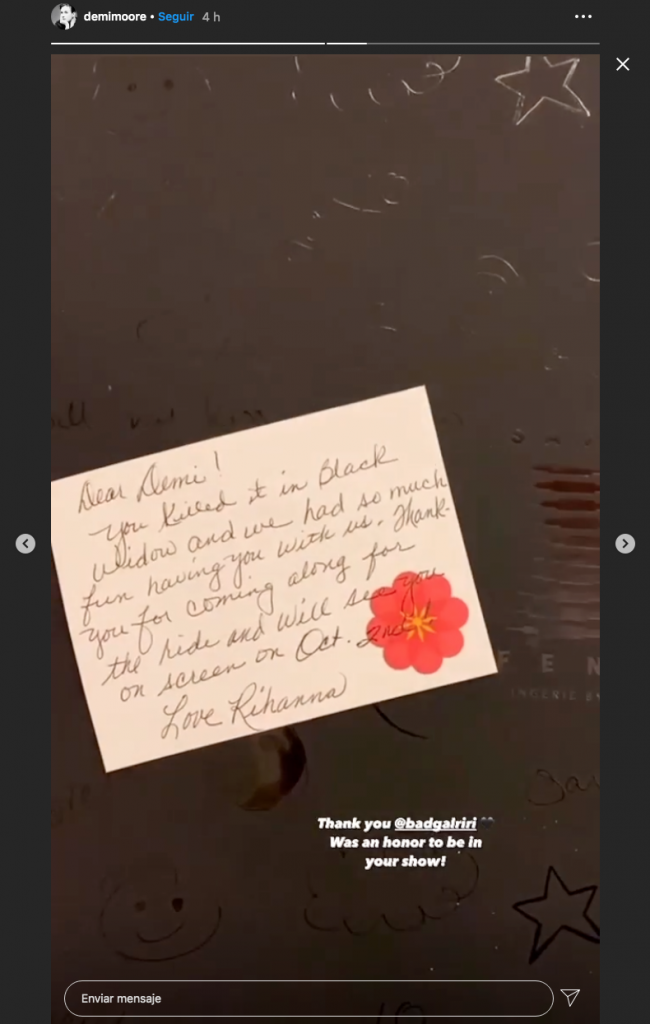 demimoore • Seguir 4 h
Dear Demi!
You killed it in Black
Widow and we had so much
fun having you with us. Thank-
you for coming along for
the ride and will see you
on screen on Oct. 2nd!
Love Rihanna
FEN
INGERIE BY
Thank you @badgalriri 🖤
Was an honor to be in
your show!
Enviar mensaje